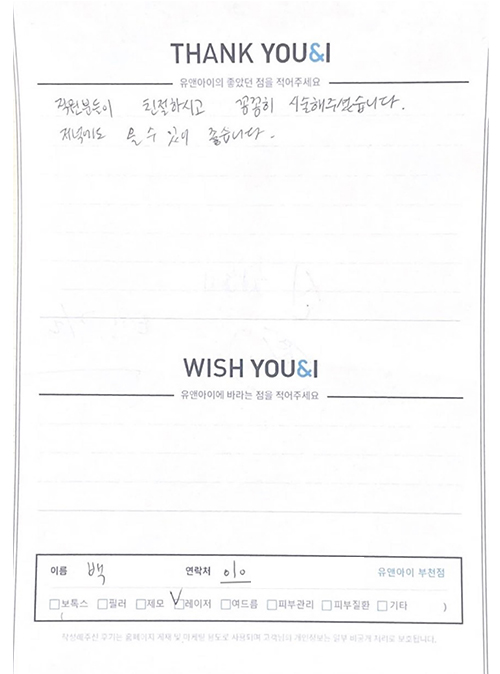 THANK YOU&I
유앤아이의 좋았던 점을 적어주세요
직원분들이 친절하시고 꼼꼼히 시술해주셨습니다.
저녁에도 올 수 있어 좋습니다.
WISH YOU&I
유앤아이에 바라는 점을 적어주세요
이름 백 연락처 010 유앤아이 부천점
□보톡스 □필러 □제모 ☑레이저 □여드름 □피부관리 □피부질환 □기타 )
(
작성해주신 후기는 홈페이지 게재 및 마케팅 용도로 사용되며 고객님의 개인정보는 일부 비공개 처리로 보호됩니다.